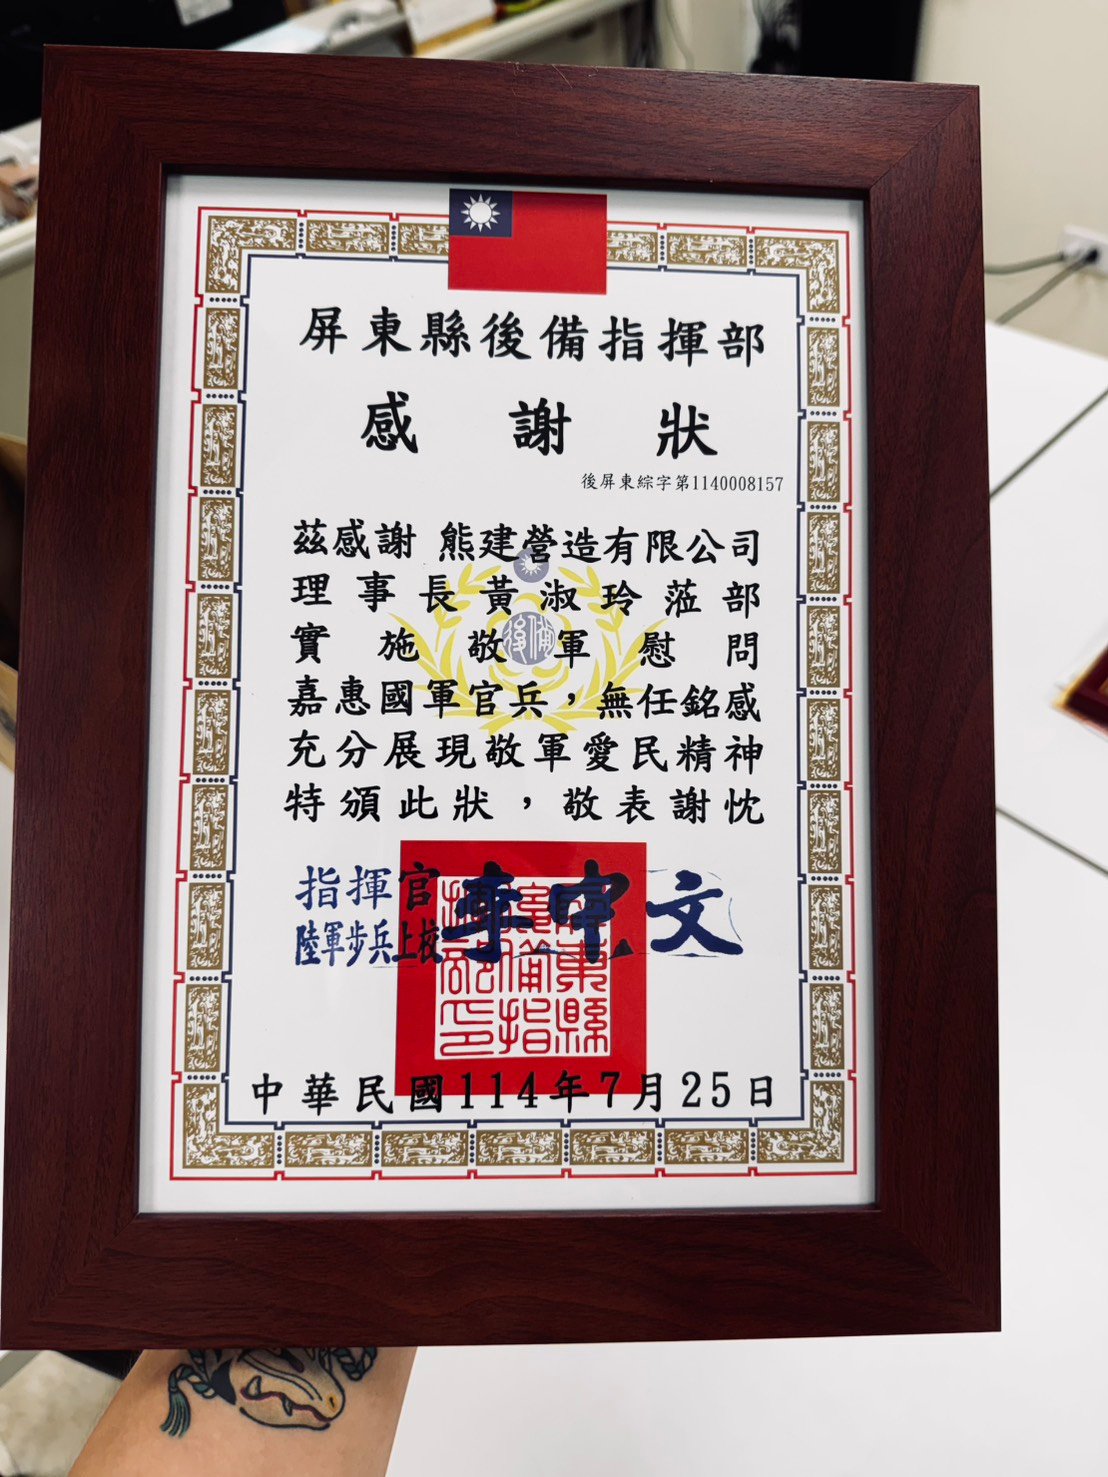 屏東縣後備指揮部
感謝狀
後屏東綜字第1140008157
茲感謝 熊建營造有限公司
理事長黃淑玲蒞部
實施敬軍慰問
嘉惠國軍官兵，無任銘感
充分展現敬軍愛民精神
特頒此狀，敬表謝忱
後備
指揮官
陸軍步兵上校
李中文
屏東縣後備指揮部印
中華民國114年7月25日